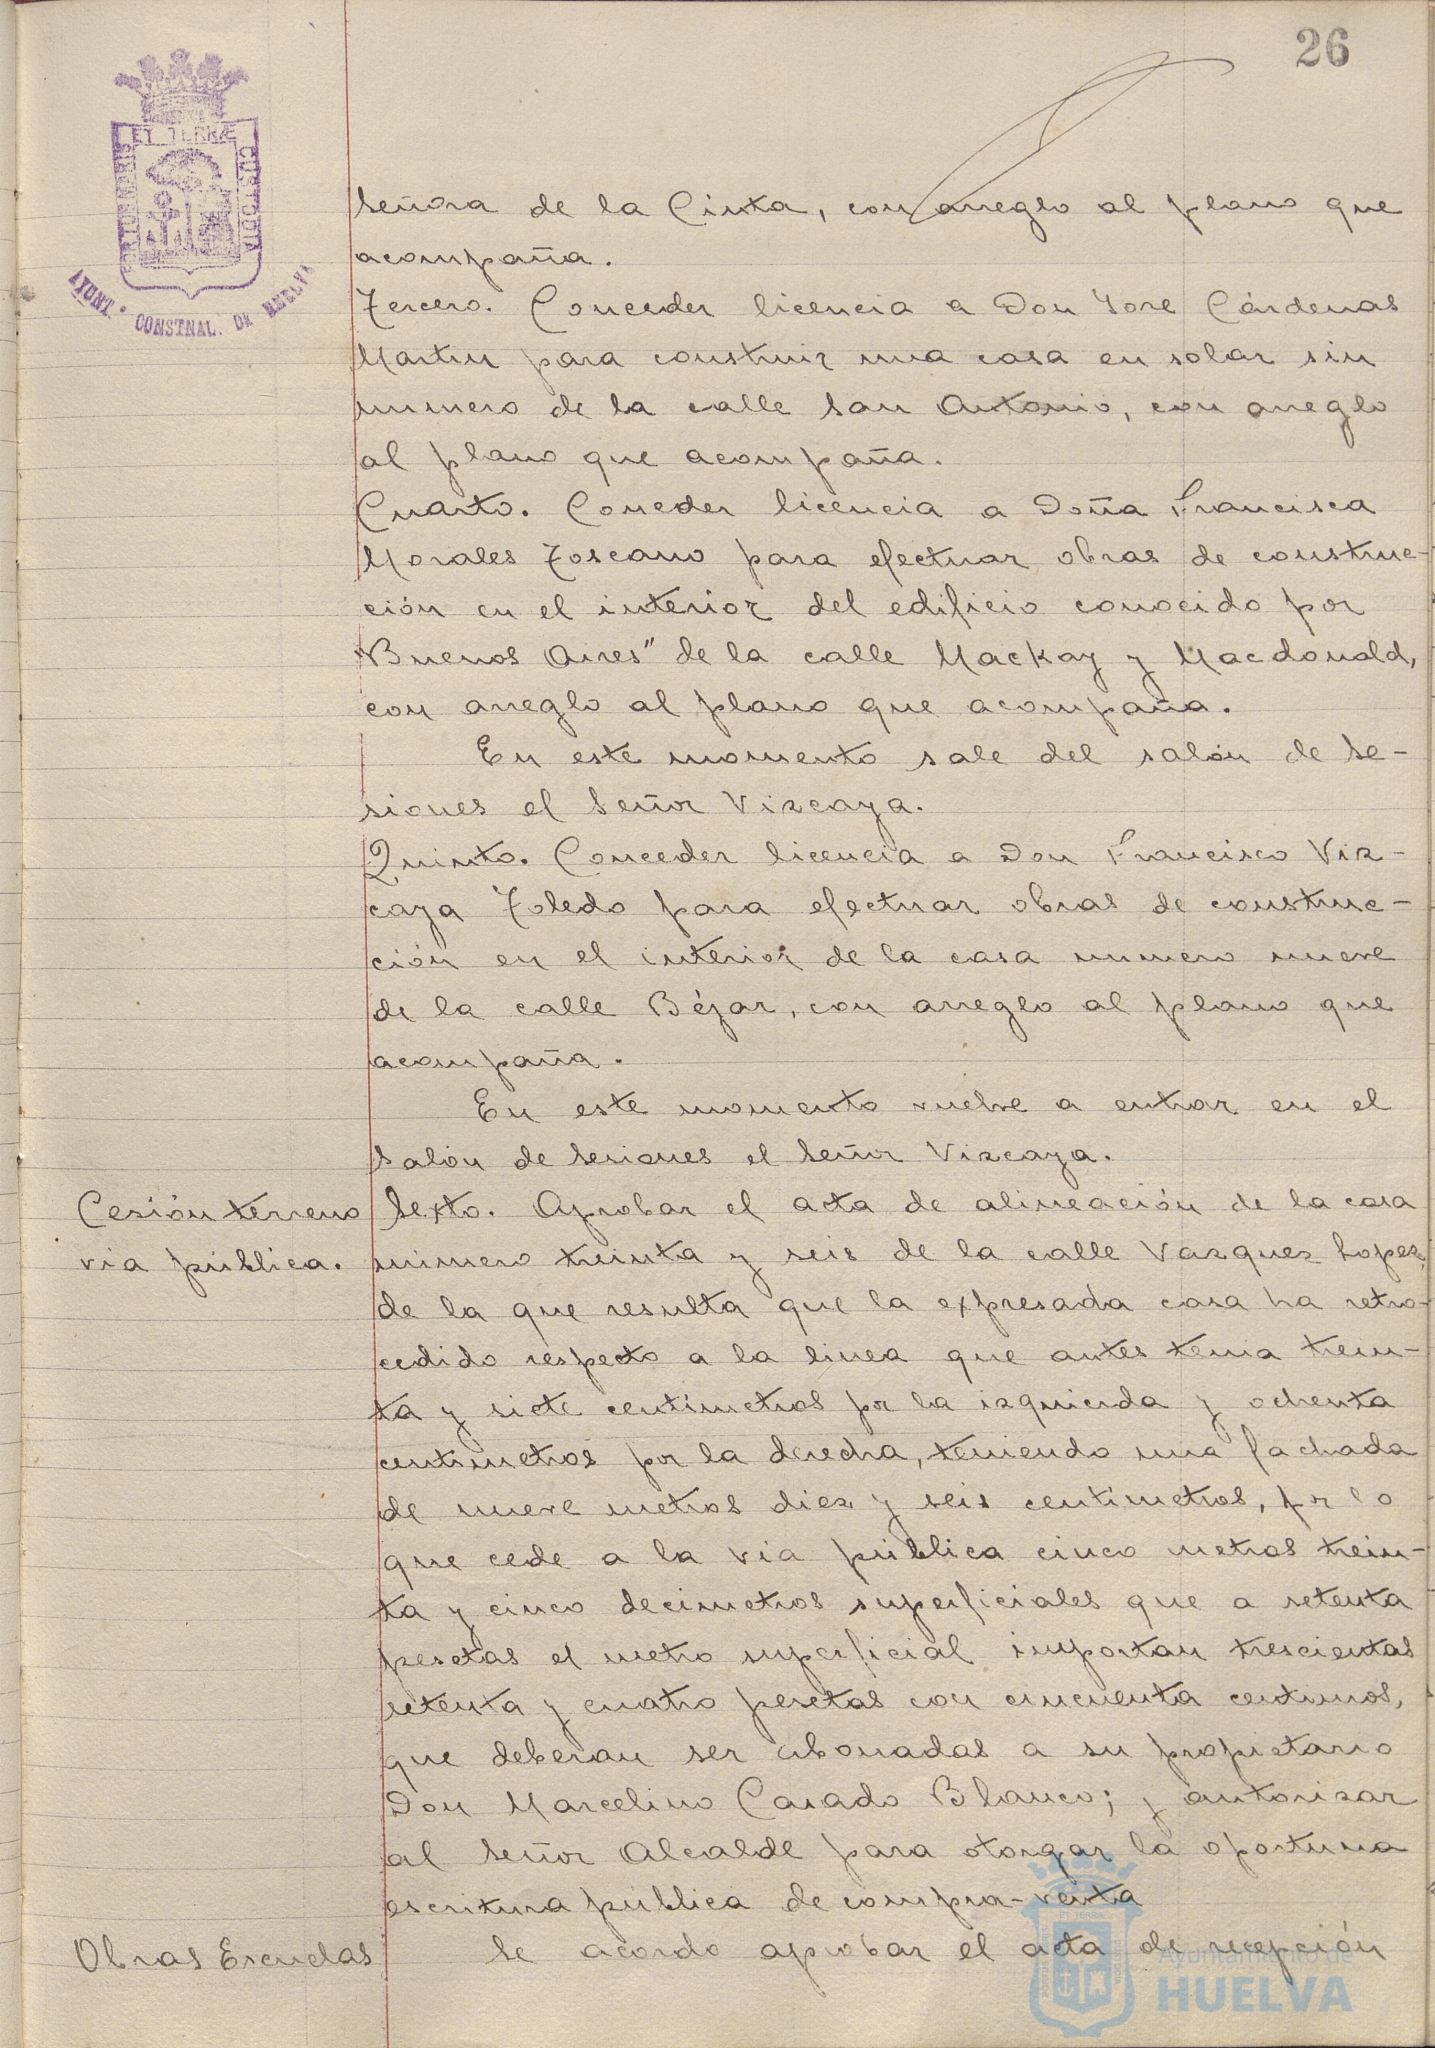 26
ET TERRÆ
PORTUS MARIS
CUSTODIA
AYUNT. CONSTNAL. DE HUELVA
Señora de la Cinta, con arreglo al plano que
acompaña.
Tercero. Conceder licencia a Don José Cárdenas
Martin para construir una casa en solar sin
numero de la calle San Antonio, con arreglo
al plano que acompaña.
Cuarto. Conceder licencia a Doña Francisca
Morales Toscano para efectuar obras de construc-
ción en el interior del edificio conocido por
"Buenos Aires" de la calle Mackay y Macdonald,
con arreglo al plano que acompaña.
En este momento sale del salón de se-
siones el Señor Vizcaya.
Quinto. Conceder licencia a Don Francisco Viz-
caya Toledo para efectuar obras de construc-
ción en el interior de la casa numero nueve
de la calle Béjar, con arreglo al plano que
acompaña.
En este momento vuelve a entrar en el
salón de sesiones el Señor Vizcaya.
Cesión terreno
via pública.
Sexto. Aprobar el acta de alineación de la casa
número treinta y seis de la calle Vazquez Lopez,
de la que resulta que la expresada casa ha retro-
cedido respecto a la linea que antes tenia trein-
ta y siete centímetros por la izquierda y ochenta
centimetros por la derecha, teniendo una fachada
de nueve metros diez y seis centimetros, por lo
que cede a la via pública cinco metros trein-
ta y cinco decimetros superficiales que a setenta
pesetas el metro superficial importan trescientas
setenta y cuatro pesetas con cincuenta centimos,
que deberan ser abonadas a su propietario
Don Marcelino Casado Blanco; y autorizar
al Señor Alcalde para otorgar la oportuna
escritura pública de compra-venta
Obras Escuelas
Se acordo aprobar el acta de recepción
Ayuntamiento de
HUELVA